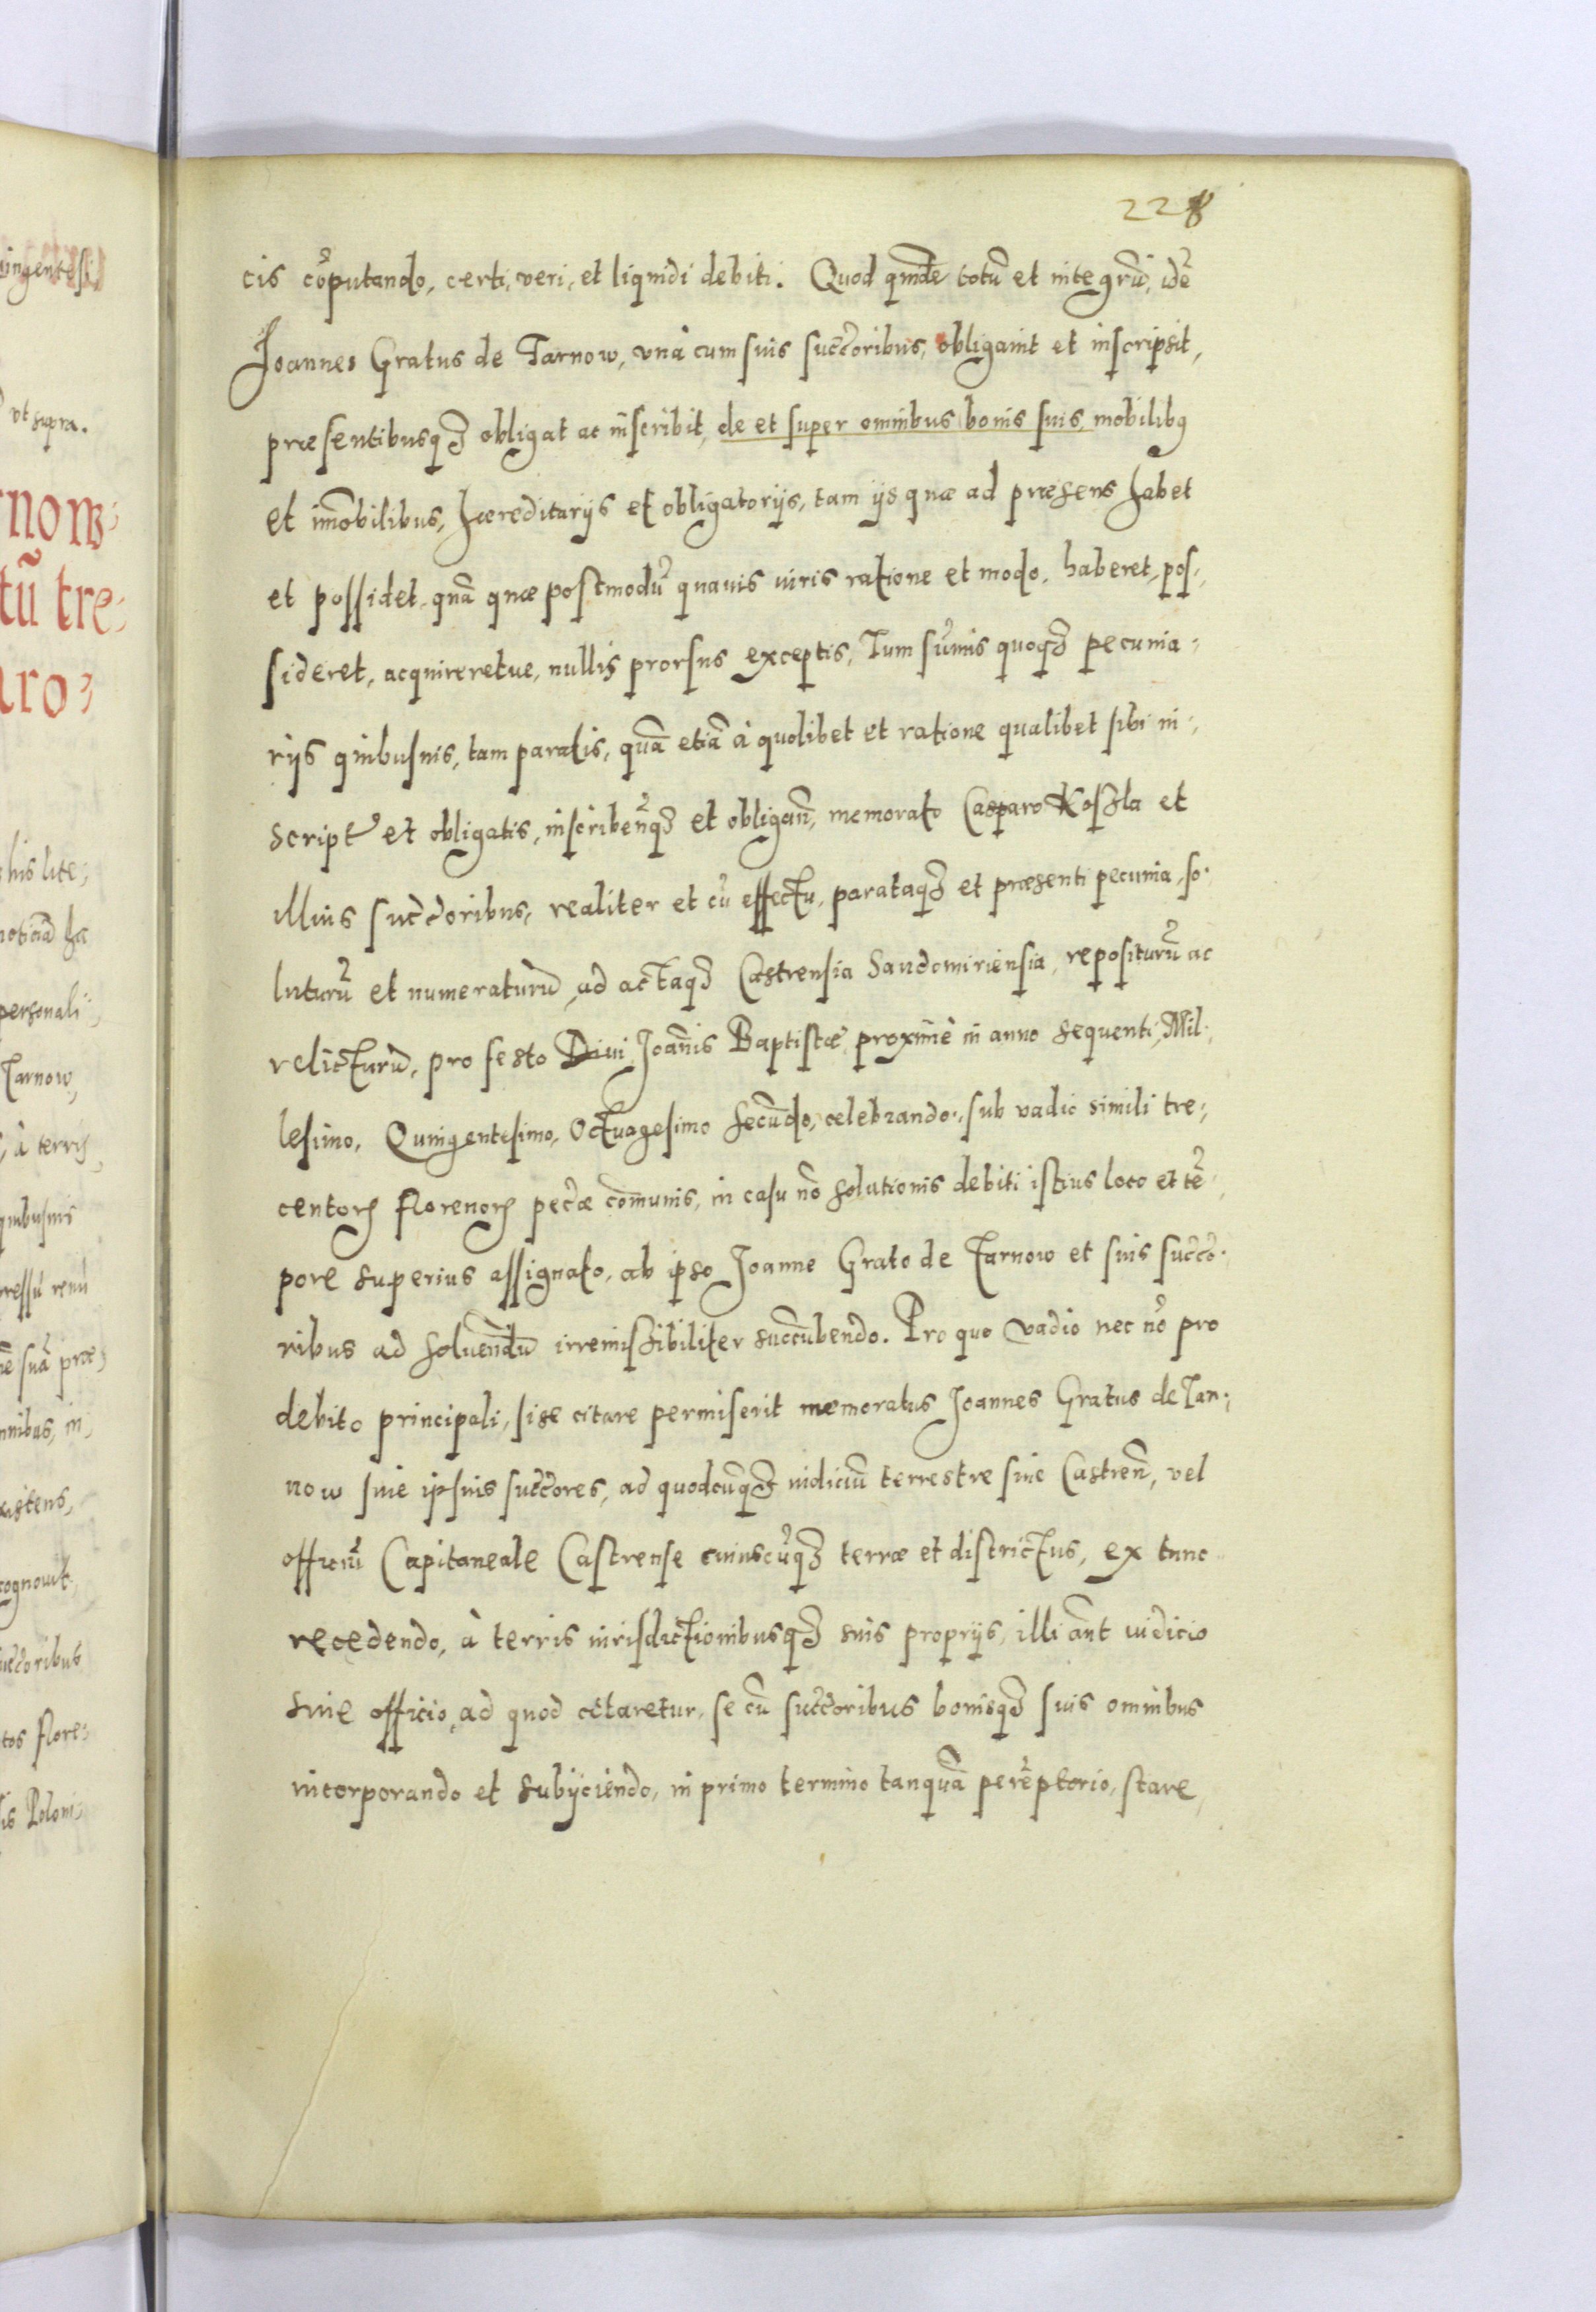 228
cis cõputando, certi, veri, et liquidi debiti. Quod quidẽ totũ et integrũ, idẽ
Joannes Gratus de Tarnow, vnà cum suis succ̃oribus, obligauit et inscripsit,
præsentibusqꝫ obligat ac inscribit, de et super omnibus bonis suis, mobilibꝰ
et im̃obilibus, hæreditarijs et obligatorijs, tam ijs quæ ad præsens habet
et possidet, quã quæ postmodũ quauis iuris ratione et modo, haberet, pos-
sideret, acquireretue, nullis prorsus exceptis, Tum sum̃is quoqꝫ pecunia-
rijs quibusuis, tam paratis, quã etiã à quolibet et ratione qualibet sibi in-
script̃ et obligatis, inscribeñqꝫ et obligañ, memorato Casparo Koszla et
illius succ̃oribus, realiter et cũ effectu, parataqꝫ et præsenti pecunia, so-
luturũ et numeraturũ, ad actaqꝫ Castrensia Sandomiriensia, repositurũ ac
relicturũ, pro festo Diui Joãnis Baptistæ, proximè in anno sequenti, Mil-
lesimo, Quingentesimo, Octuagesimo Secũdo, celebrando, sub vadio simili tre-
centoꝝ florenoꝝ pec̃æ com̃unis, in casu nõ solutionis debiti istius loco et tẽ-
pore superius assignato, ab ipso Joanne Grato de Tarnow et suis succ̃o-
ribus ad soluendũ irremissibiliter succũbendo. Pro quo vadio nec nõ pro
debito principali, si se citare permiserit memoratus Joannes Gratus de Tar-
now siue ipsius succ̃ores, ad quodcũqꝫ iudiciũ terrestre siue Castreñ, vel
officiũ Capitaneale Castrense cuiuscũqꝫ terræ et districtus, ex tunc
recedendo, à terris iurisdictionibusqꝫ suis proprijs, illi ãnt iudicio
siue officio, ad quod citaretur, se cũ succ̃oribus bonisqꝫ suis omnibus
incorporando et subijciendo, in primo termino tanquã perẽptorio, stare,